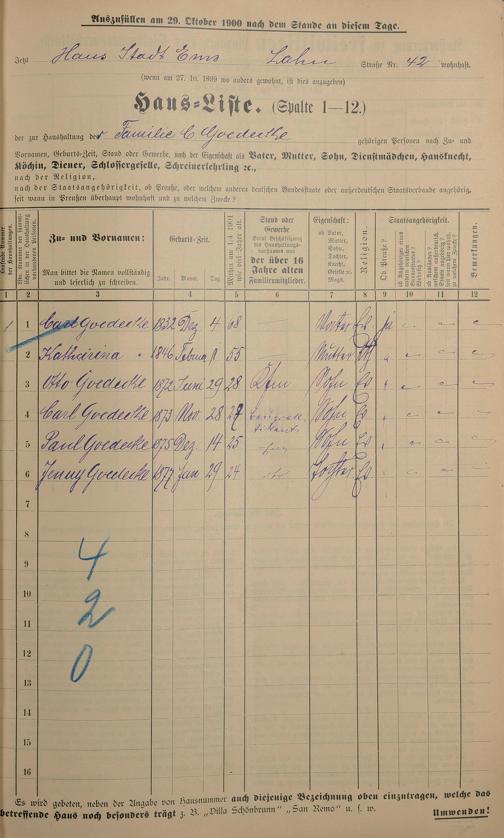 Auszufüllen am 29. Oktober 1900 nach dem Stande an diesem Tage.
Jetzt Haus Stadt Ems Lahn Straße Nr. 42 wohnhaft.
(wenn am 27. 10. 1899 wo anders gewohnt, ist dies anzugeben)
Haus-Liste. (Spalte 1—12.)
der zur Haushaltung der Familie C Goedecke gehörigen Personen nach Zu- und
Vornamen, Geburts-Zeit, Stand oder Gewerbe, nach der Eigenschaft als Vater, Mutter, Sohn, Dienstmädchen, Hausknecht,
Köchin, Diener, Schlossergeselle, Schreinerlehrling ꝛc.,
nach der Religion,
nach der Staatsangehörigkeit, ob Preuße, oder welchem anderen deutschen Bundesstaate oder außerdeutschen Staatsverbande angehörig,
seit wann in Preußen überhaupt wohnhaft und zu welchem Zwecke?
Zu- und Vornamen:
Man bittet die Namen vollständig
und leserlich zu schreiben.
Geburts-Zeit.
Jahr. Monat. Tag.
Mithin am 1/4 1901
Stand oder
Gewerbe
der über 16
Jahre alten
Familienmitglieder.
Eigenschaft:
ob Vater,
Mutter,
Sohn,
Religion.
Staatsangehörigkeit.
Ob Preuße?
Bemerkungen.
1 2 3 4 5 6 7 8 9 10 11 12
1 1 Carl Goedecke 1832 Dez 4 68 Vater Ev ja
2 Katharina 1846 Februar 11 55 Mutter
3 Otto Goedecke 1872 Juni 29 28 Sohn Ev
4 Carl Goedecke 1873 Nov. 28 27 Sohn Ev
5 Paul Goedecke 1875 Dez. 14 25 Sohn Ev
6 Jenny Goedecke 1877 Jan 29 24 Tochter Ev
7
8
9
10
11
12
13
14
15
16
4
2
0
Es wird gebeten, neben der Angabe von Hausnummer auch diejenige Bezeichnung oben einzutragen, welche das
betreffende Haus noch besonders trägt z. B. „Villa Schönbrunn" „San Remo" u. s. w. Umwenden!